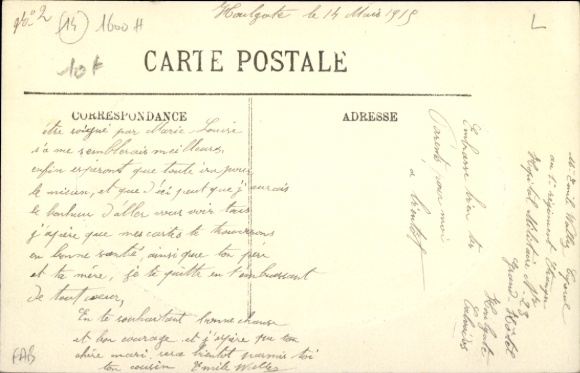 N° 2
14
1600 H
10 F
L
Houlgate le 14 Mars 1915
CARTE POSTALE
CORRESPONDANCE
ADRESSE
être soigné par Marie Louise
sa me semblerais meilleure,
enfin esperont que toute ira pour
le mieux, et que d'ici peut que j'aurais
le bonheur d'aller vous voir tous
j'espère que mes cartes te trouverons
en bonne santé, ainsi que ton père
et ta mère, je te quitte en t'embrassant
de tout cœur,
En te souhaitant bonne chance
et bon courage et j'espère que ton
chère mari sera bientot parmis toi
ton cousin Emile Walles
Embrasse bien tes
Parents pour moi
a bientot
Mr Emile Walles Caporal
au 1er régiment Etranger
Hopital Militaire N° 23
Grand Hotel
Houlgate
Calvados
FAB